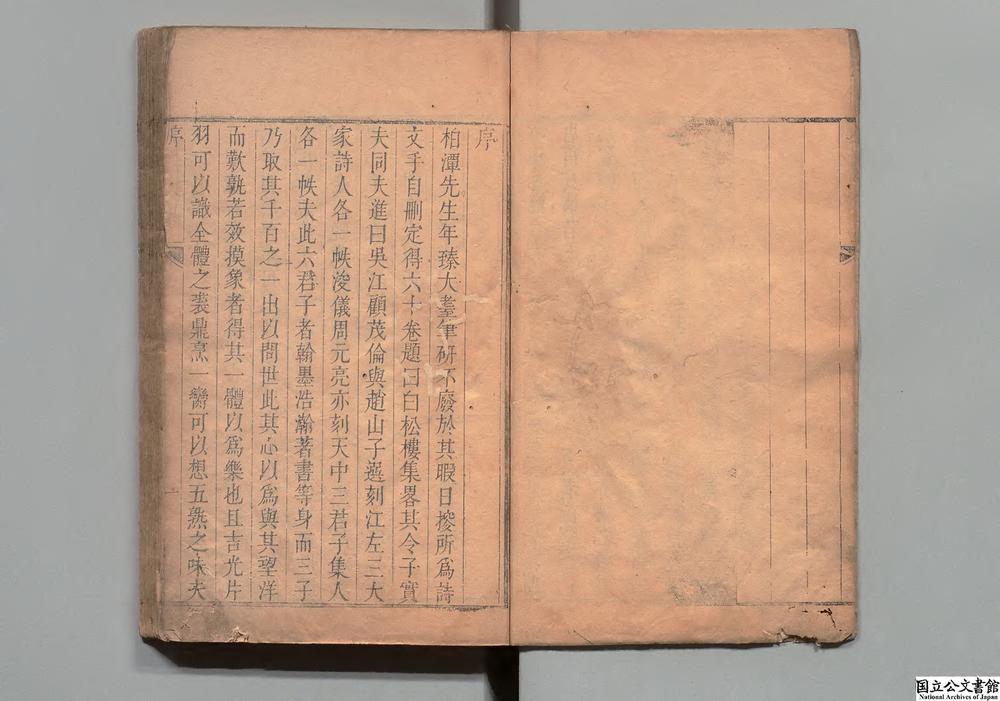 序
柏潭先生年臻大耋筆研不廢於其暇日搜所爲詩
文手自刪定得六十卷題曰白松樓集畧其令子實
夫同夫進曰吳江顧茂倫與趙山子選刻江左三大
家詩人各一帙浚儀周元亮亦刻天中三君子集人
各一帙夫此六君子者翰墨浩瀚著書等身而三子
乃取其千百之一出以問世此其心以爲與其望洋
而歎孰若效摸象者得其一體以爲樂也且吉光片
羽可以識全體之裘鼎烹一臠可以想五熟之味夫
序
一
国立公文書館
National Archives of Japan